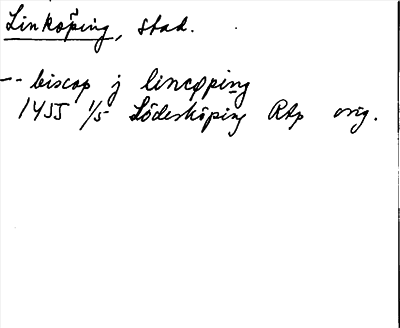 Linköping, stad.
-- biscop j lincøping
1455 1/5 Söderköping RAp orig.